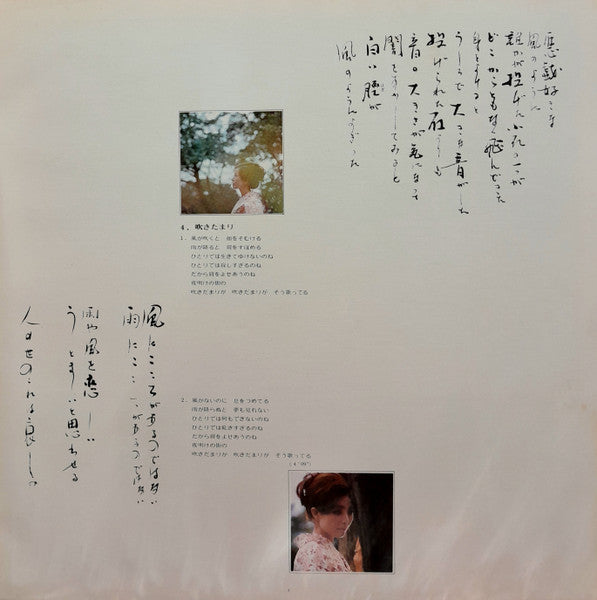 悪戯好きな
風のように
誰かが投げた小石の一つが
どこからともなく飛んで
身をよけると
うしろで大きな音がした
投げられた石よりも
音の大きさが気になって
闇をすかしてみると
白い
風のようによぎった
4. 吹きだまり
1. 風が吹くと をそむける
雨が降ると 肩をすぼめる
ひとりでは生きてゆけないのね
ひとりでは寂しすぎるのね
だから肩をよせあうのね
夜明けの街の
吹きだまりが 吹きだまりが そう歌ってる
風にこころがあるのではない
雨にこころがあるのではない
雨や風を悲しい
うとましいと思わせる
人の世のこれは哀しみ
2. 風がないのに 息をつめてる
雨が降らぬと 夢も見れない
ひとりでは何もできないのね
ひとりでは すぎるのね
だから肩をよせあうのね
夜明けの街の
吹きだまりが 吹きだまりが そう歌ってる
(4'09")